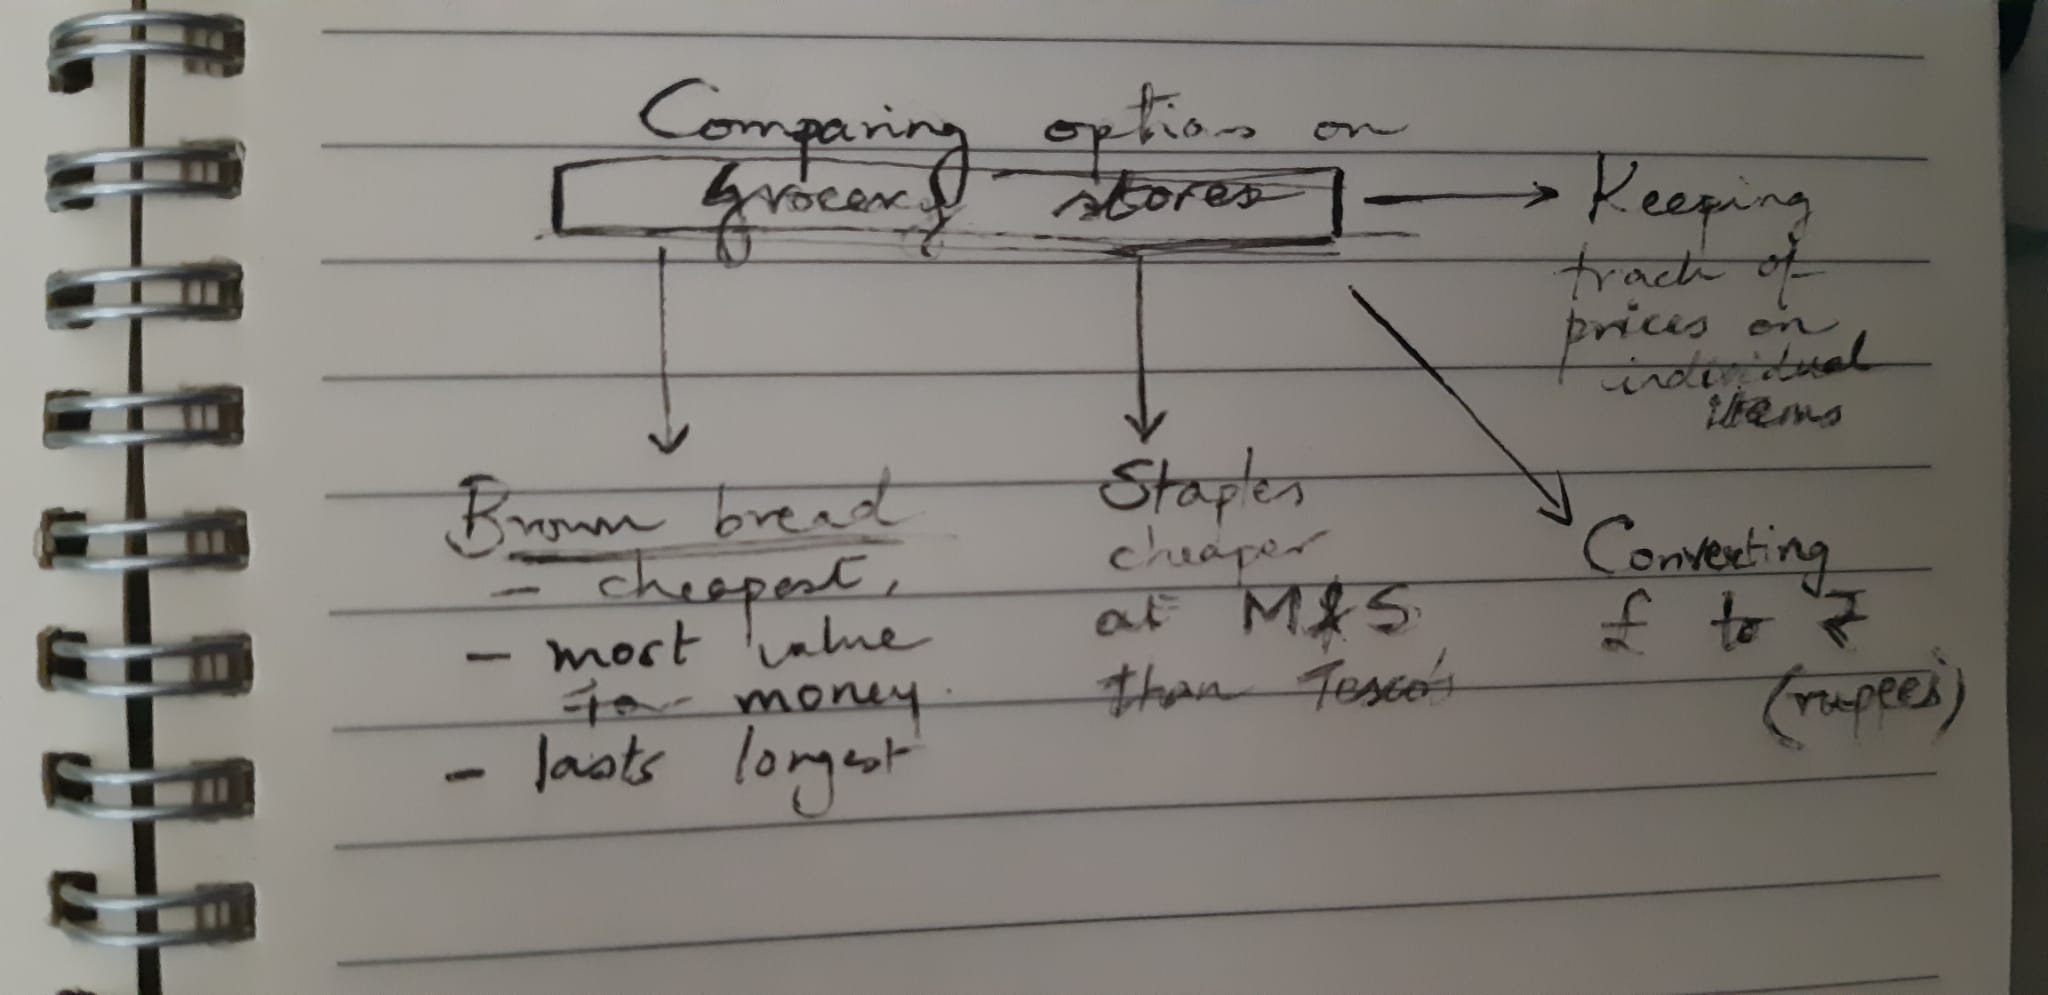 Comparing options on
grocery stores
Keeping
track of
prices on
individual
items
Brown bread
- cheapest,
- most value
for money.
- lasts longest
Staples
cheaper
at M&S
than Tesco's
Converting
£ to ₹
(rupees)